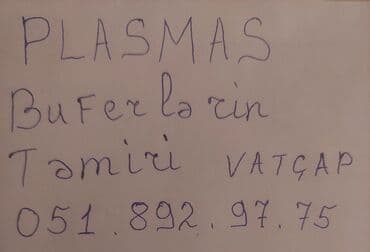 PLASMAS
Buferlərin
Təmiri VATÇAP
051.892.97.75